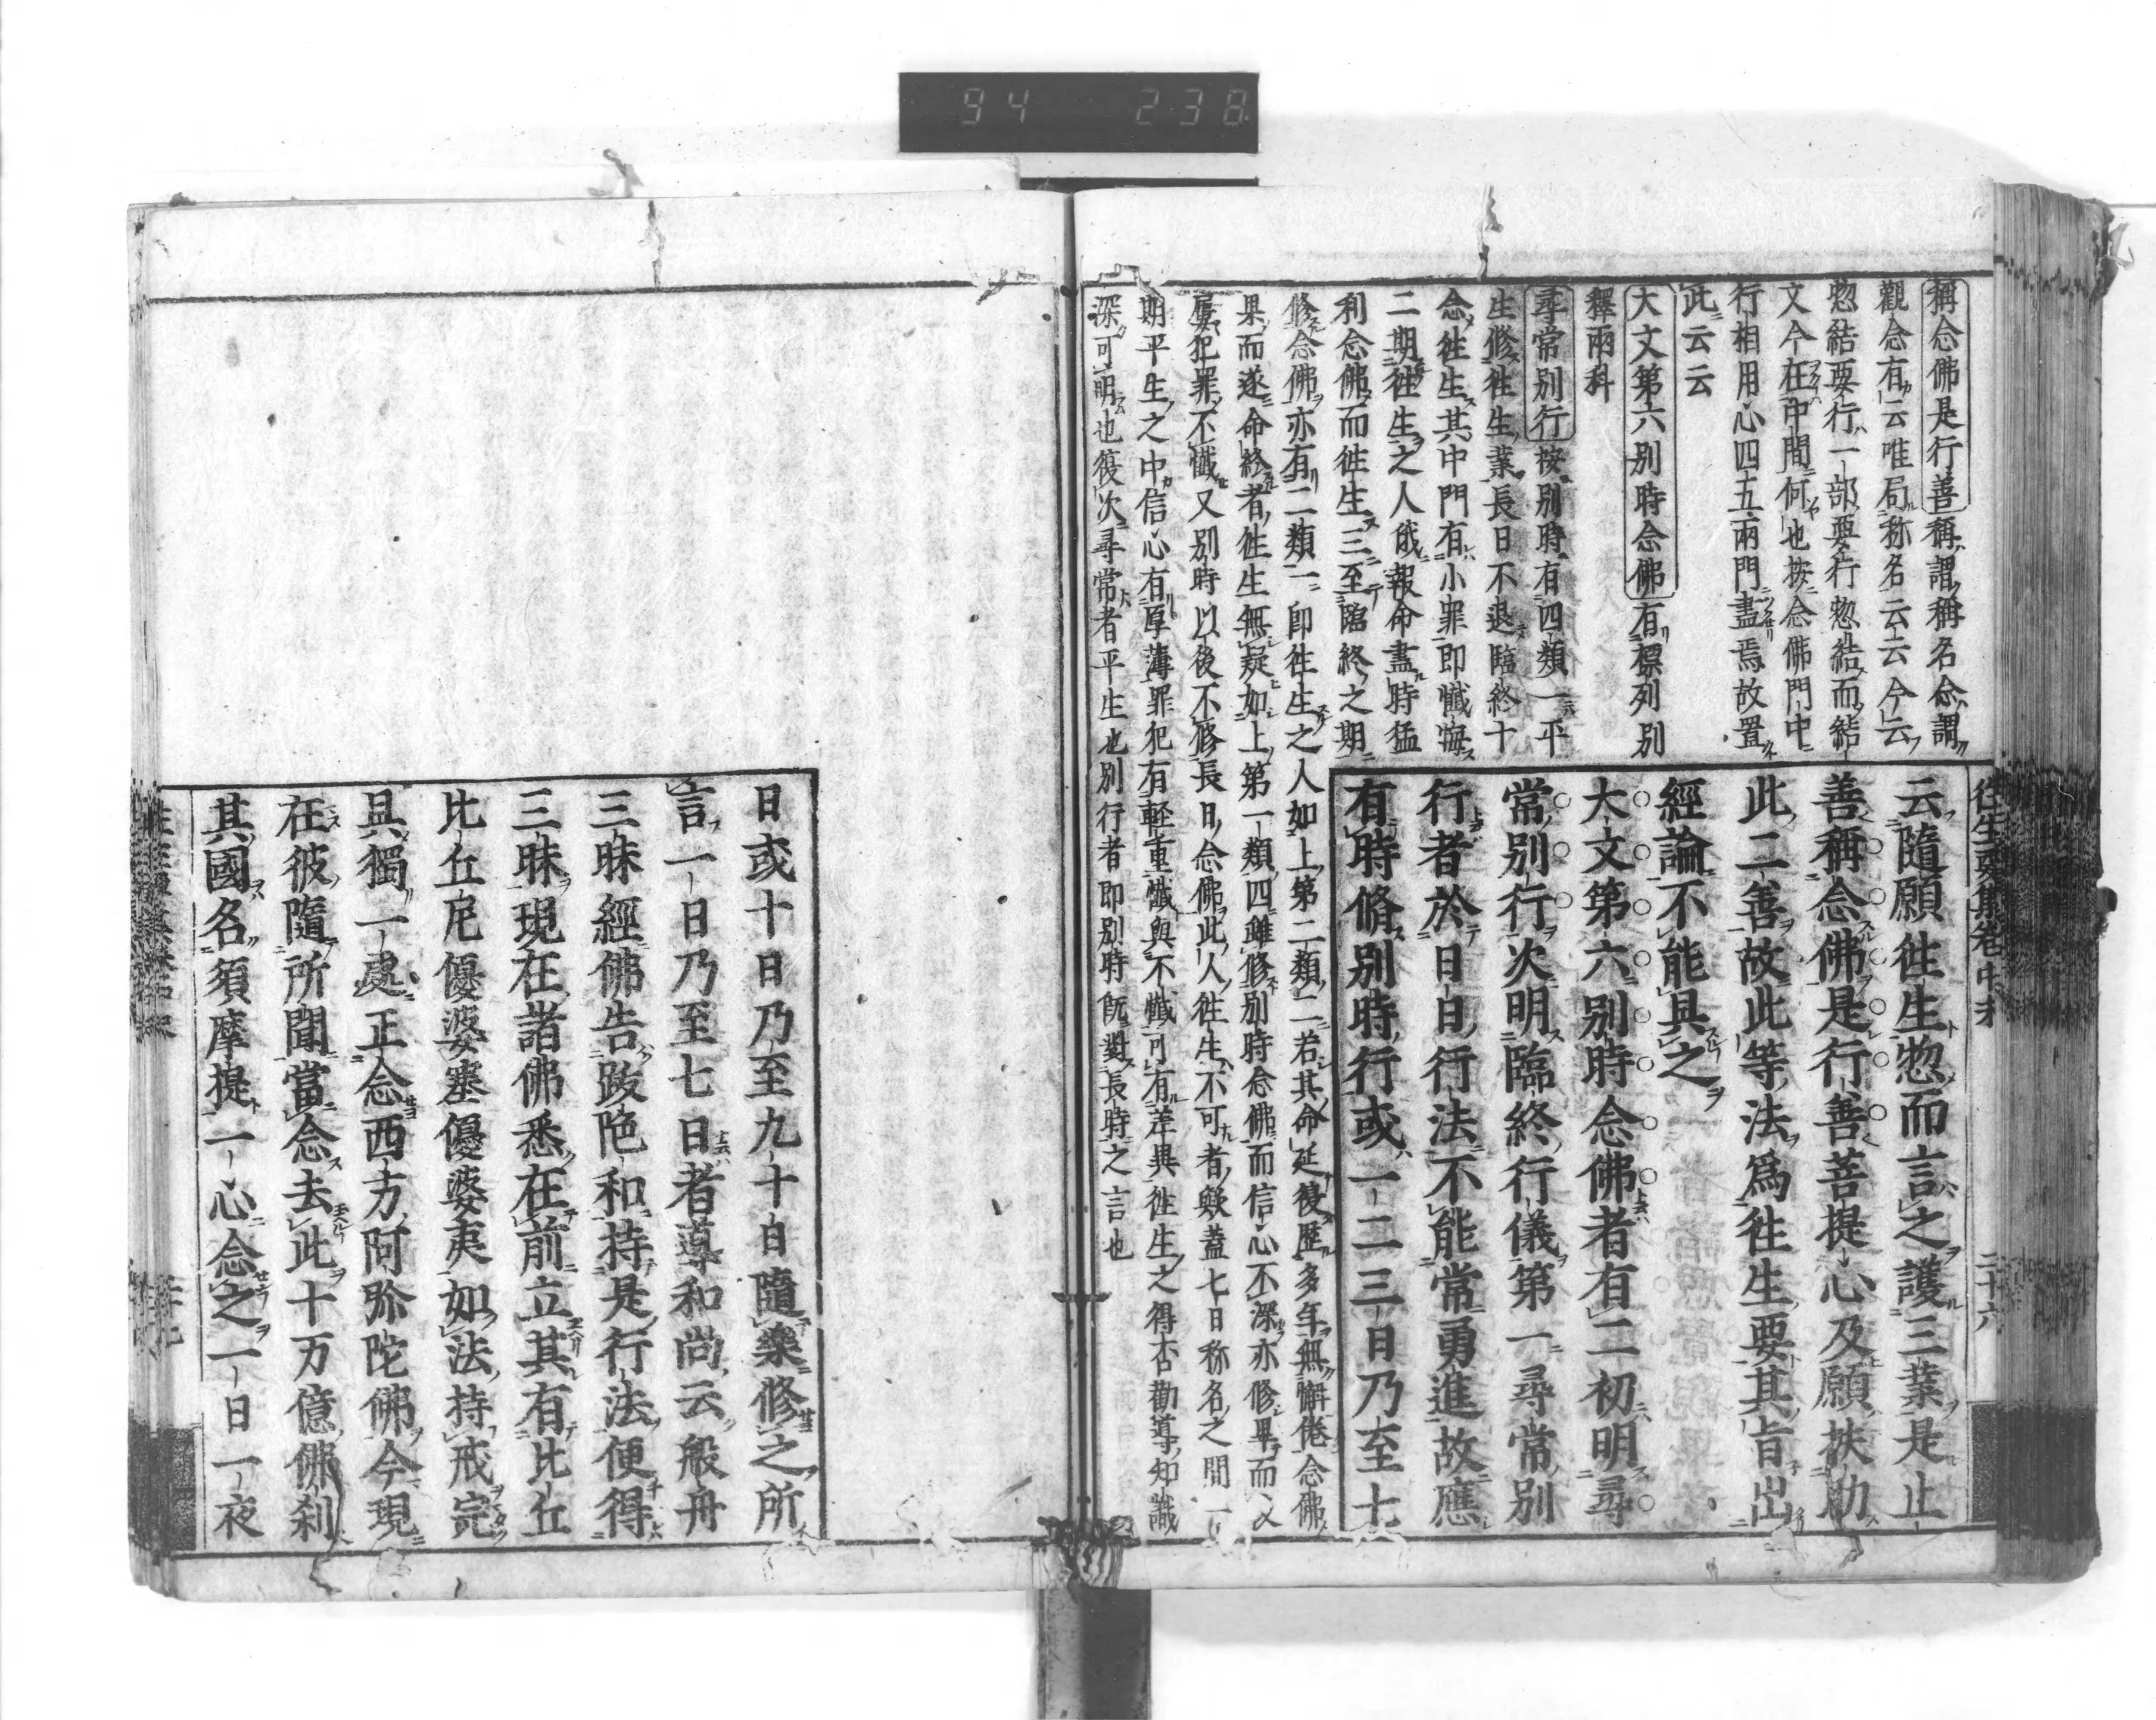 94 238
稱念佛是行善稱謂稱名念謂
觀念有云唯局称名云云今云
惣結要行一部要行惣結而結
文今在中間何也按念佛門中
行相用心四五兩門盡焉故置
此云云
大文第六別時念佛有標列別
釋兩科
尋常別行按別時有四類一平
生修往生業長日不退臨終十
念往生其中門有小罪即懺悔
二期往生之人俄報命盡時猛
利念佛而往生三至臨終之期
修念佛亦有二類一即往生之人如上第二類二若其命延復歷多年無懈倦念佛
果而遂命終者往生無疑如上第一類四雖修別時念佛而信心不深亦修畢而又
屢犯罪不懺又別時以後不修長日念佛此人往生不可者歟蓋七日称名之間一
期平生之中信心有厚薄罪犯有軽重懺與不懺可有差異往生之得否勸導知識
深可明也復次尋常者平生也別行者即別時既對長時之言也
往生要集卷中末 二十六
云隨願往生惣而言之護三業是止
善稱念佛是行善菩提心及願扶助
此二善故此等法爲往生要其旨出
經論不能具之
大文第六別時念佛者有二初明尋
常別行次明臨終行儀第一尋常別
行者於日日行法不能常勇進故應
有時脩別時行或一二三日乃至七
日或十日乃至九十日隨樂修之所
言一日乃至七日者導和尚云般舟
三昧經佛告跋陀和持是行法便得
三昧現在諸佛悉在前立其有比丘
比丘尼優婆塞優婆夷如法持戒完
具獨一處正念西方阿弥陀佛今現
在彼隨所聞當念去此十万億佛刹
其國名須摩提一心念之一日一夜